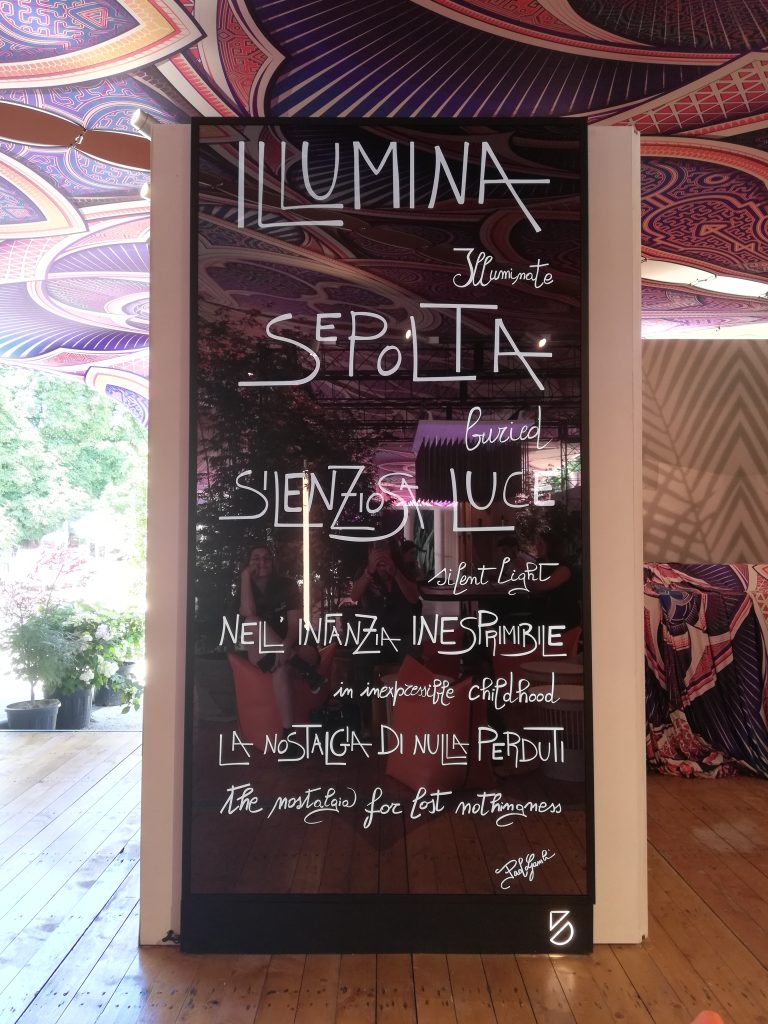 ILLUMINA
Illuminate
SEPOLTA
buried
SILENZIOSA LUCE
silent light
NELL' INFANZIA INESPRIMIBILE
in inexpressible childhood
LA NOSTALGIA DI NULLA PERDUTI
the nostalgia for lost nothingness